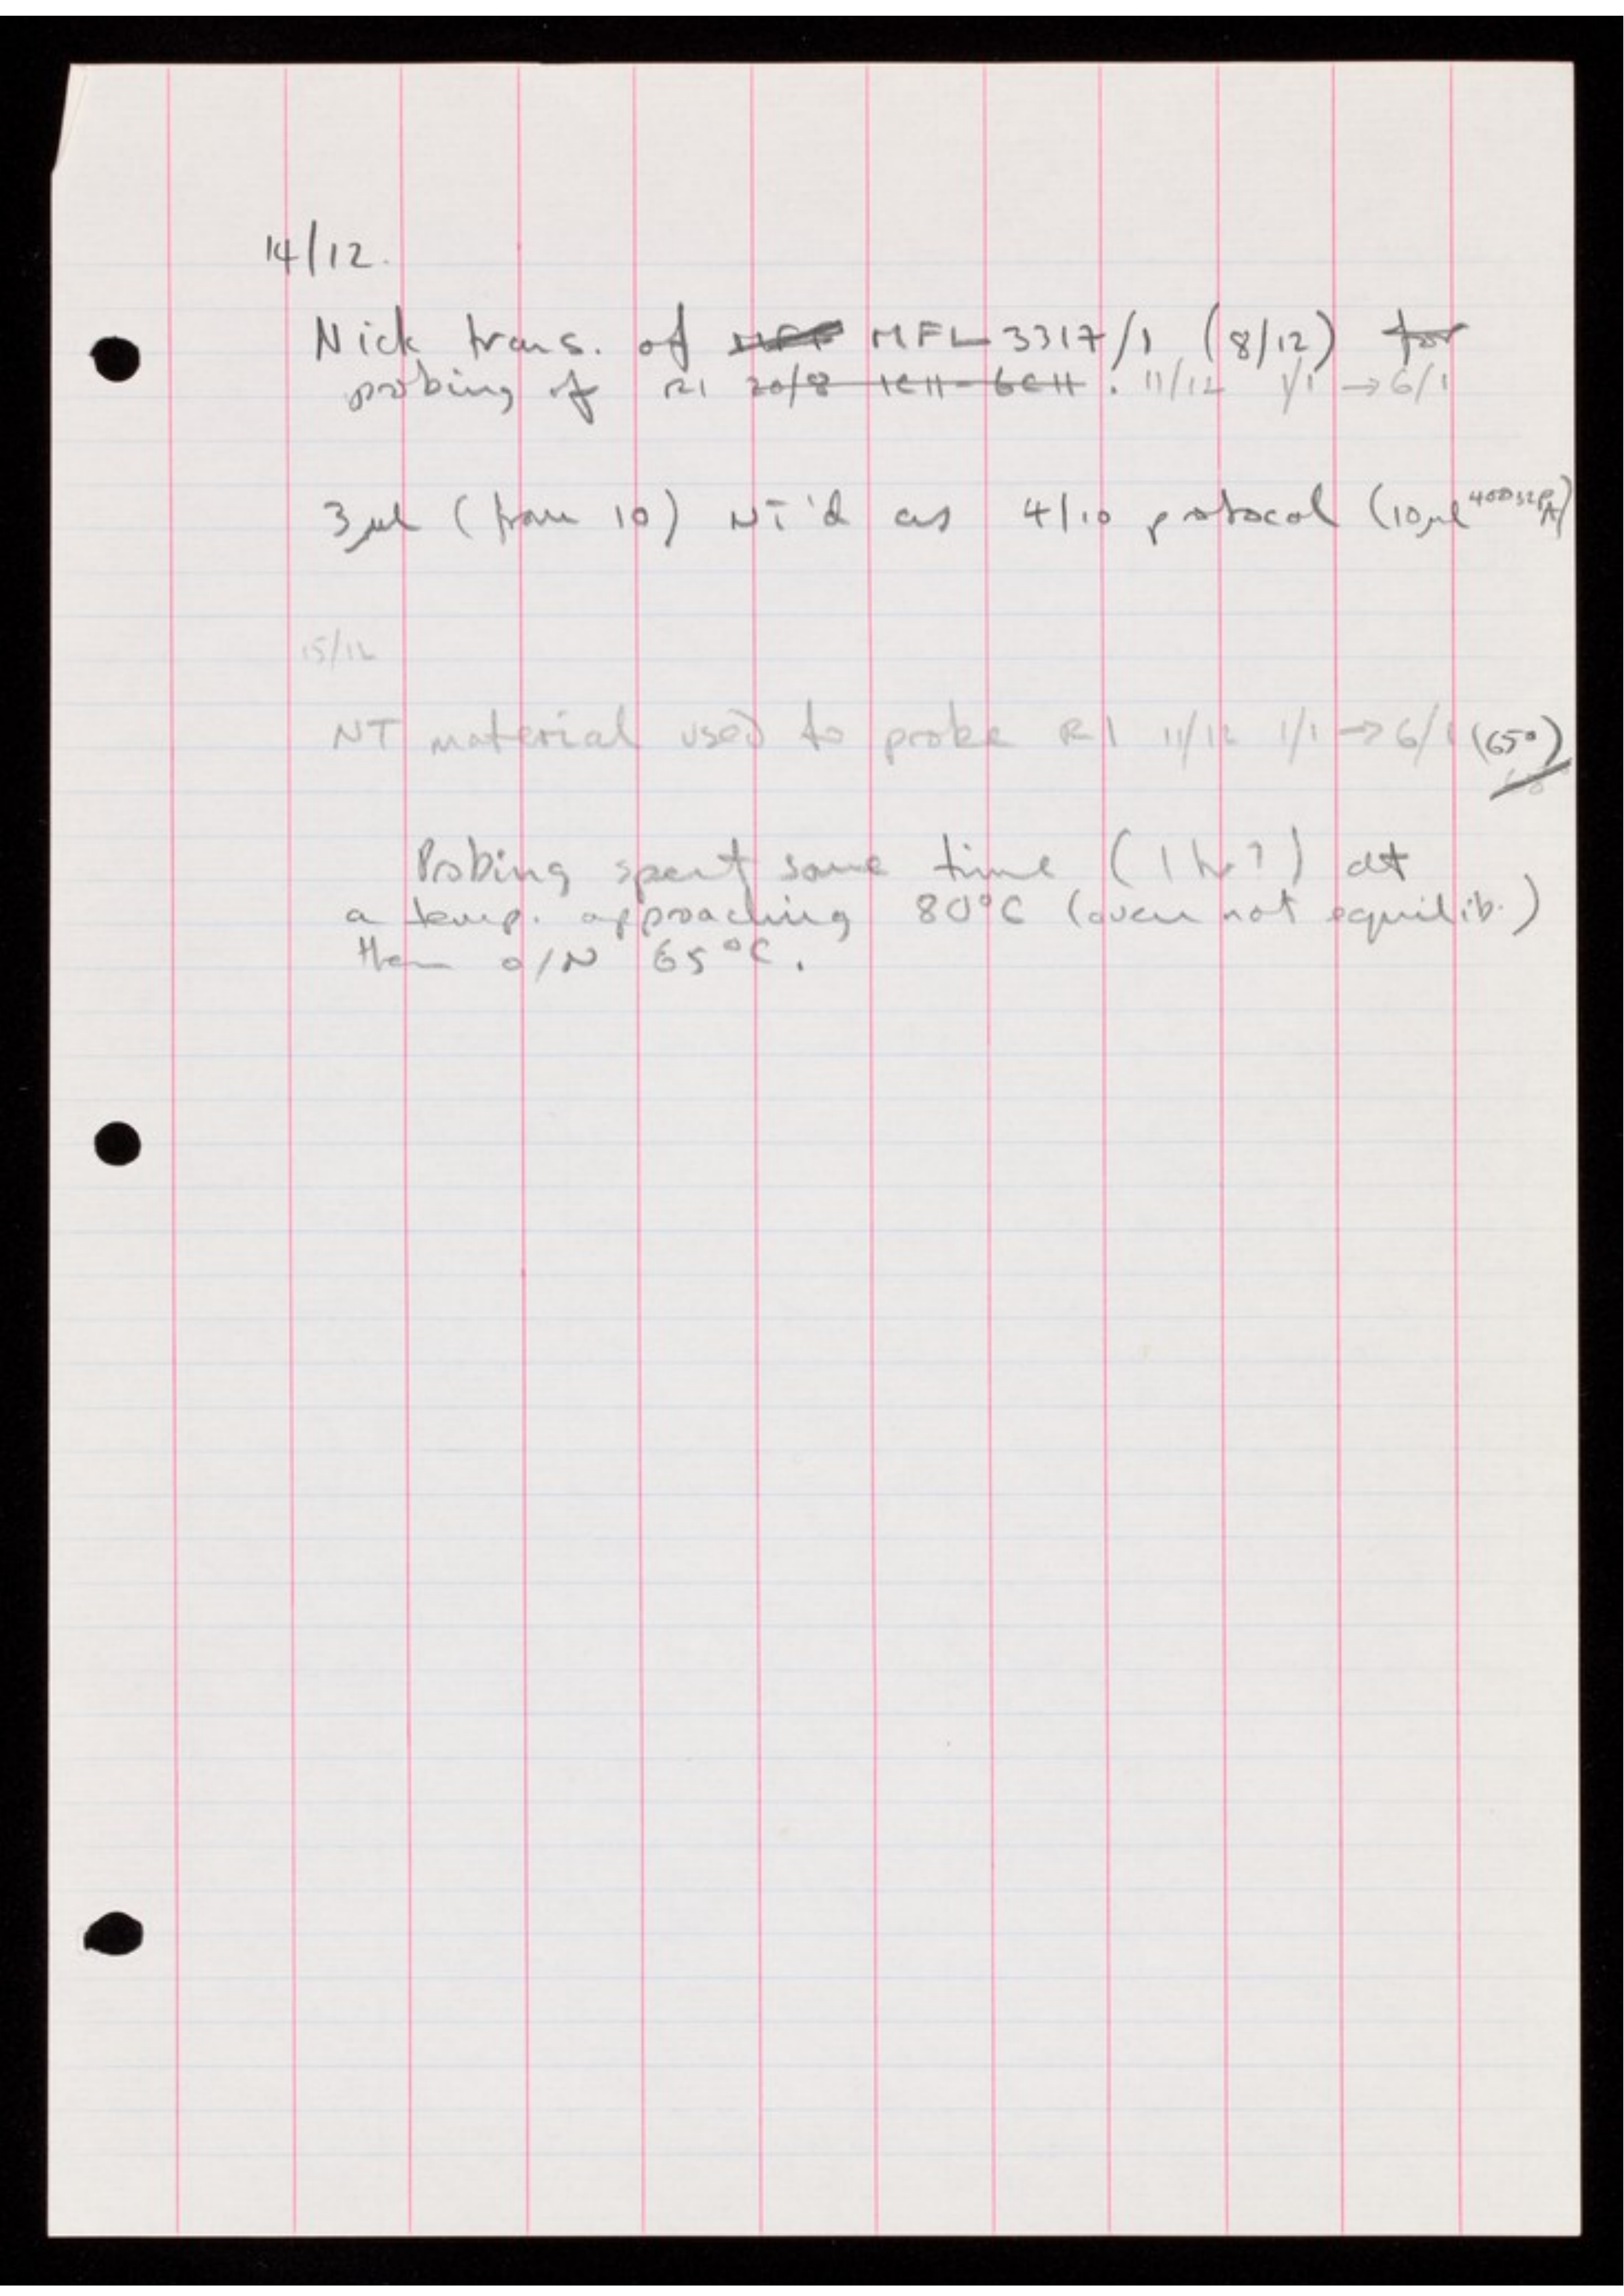 14/12.
Nick trans. of MFL 3317/1 (8/12) for
probing of R1 20/8 1CH-6CH. 11/12 1/1 → 6/1
3µl (from 10) NT'd as 4/10 protocol (10µl
15/12
NT material used to probe R1 11/12 1/1 → 6/1 (65°)
Probing spent some time (1 hr?) at
a temp. approaching 80°C (oven not equilib.)
then o/N 65°C.